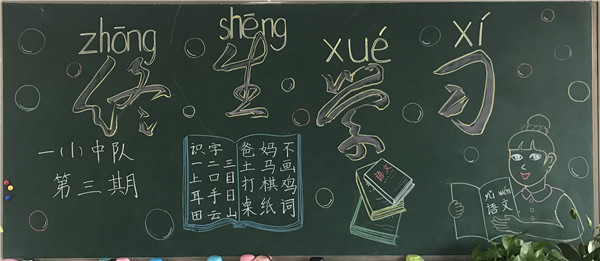 zhōng shēng xué xí
终生学习
一(1)中队
第三期
识字
一二三
上口目
耳手日
田云山
爸妈不
土马画
打棋鸡
桌纸词
语文
yǔ wén
语文